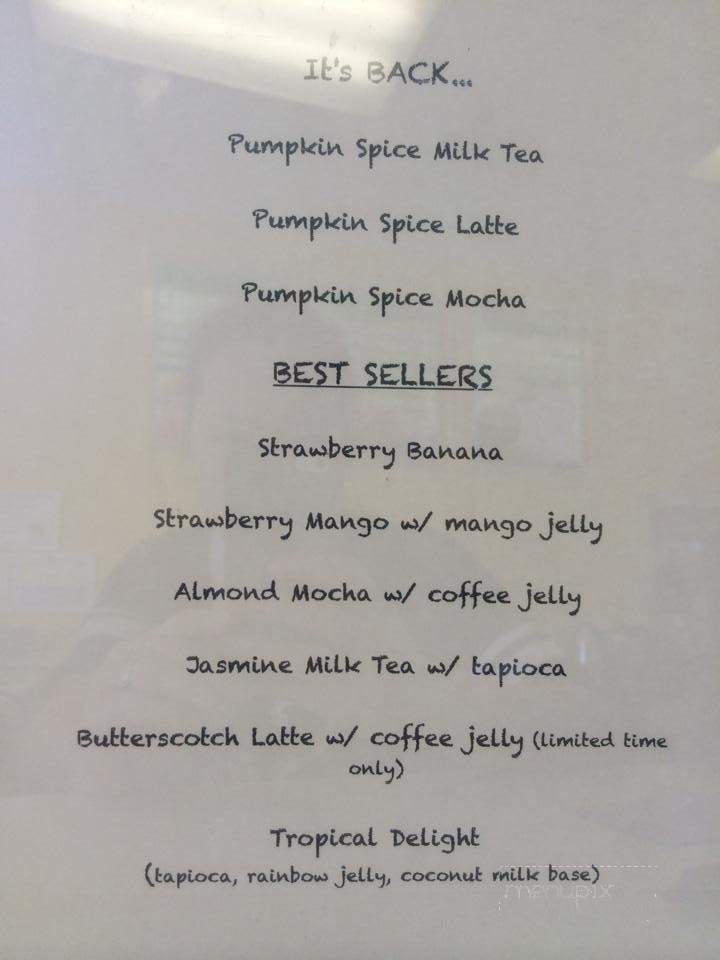 It's BACK...
Pumpkin Spice Milk Tea
Pumpkin Spice Latte
Pumpkin Spice Mocha
BEST SELLERS
Strawberry Banana
Strawberry Mango w/ mango jelly
Almond Mocha w/ coffee jelly
Jasmine Milk Tea w/ tapioca
Butterscotch Latte w/ coffee jelly (limited time
only)
Tropical Delight
(tapioca, rainbow jelly, coconut milk base)
menupix